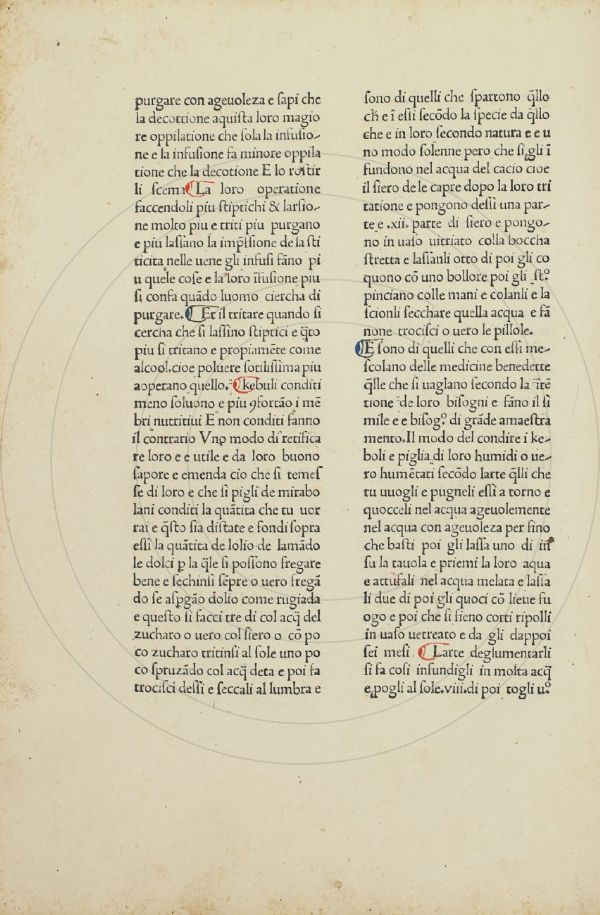 purgare con ageuoleza e sapi che
la decottione aquista loro magio
re oppilatione che sola la infusio-
ne e la infusione fa minore oppila
tione che la decotione E lo rostir
li scemi La loro operatione
faccendoli piu stiptichi & larsio-
ne molto piu e triti piu purgano
e piu lassano la imp̃ssione de la sti
ticita nelle uene gli infusi fāno pi
u quele cose e la loro īfusione piu
si confa quādo luomo ciercha di
purgare. Et il tritare quando si
cercha che si lassino stiptici e q̄to
piu si tritano e propiamēte come
alcool.cioe poluere sotilissima piu
aoperano quello. kebuli conditi
meno soluono e piu ꝯfortão i mē
bri nutritiui E non conditi fanno
il contrario Vno modo di retifica
re loro e e utile e da loro buono
sapore e emenda cio che si temes
se di loro e che si pigli de mirabo
lani conditi la quātita che tu uor
rai e q̄sto sia distate e fondi sopra
essi la quātita de lolio de lamādo
le dolci p la q̄le si possono fregare
bene e sechinsi sēpre o uero fregā
do se aspgāo dolio come rugiada
e questo si facci tre di col acq̄ del
zucharo o uero col siero o cō po
co zucharo tritinsi al sole uno po
co spruzādo col acq̄ deta e poi fa
trocisci dessi e seccali al lumbra e
sono di quelli che spartono q̄llo
ch e ī essi secōdo la specie da q̄llo
che e in loro secondo natura e e u
no modo solenne pero che si gli ī
fundono nel acqua del cacio cioe
il siero de le capre dopo la loro tri
tatione e pongono dessi una par-
te e .xii. parte di siero e pongo-
no in uaso uitriato colla boccha
stretta e lassanli otto di poi gli co
quono cō uno bollore poi gli sto
pinciano colle mani e colanli e la
scionli secchare quella acqua e fā
none trocisci o uero le pillole.
E sono di quelli che con essi me-
scolano delle medicine benedette
q̄lle che si uaglano secondo la ītē
tione de loro bisogni e fāno il si
mile e e bisogo di grāde amaestra
mento.Il modo del condire i ke-
boli e piglia di loro humidi o ue-
ro humētati secōdo larte q̄lli che
tu uuogli e pugneli essi a torno e
quocceli nel acqua ageuolemente
nel acqua con ageuoleza per fino
che basti poi gli lassa uno di
su la tauola e priemi la loro aqua
e attufali nel acqua melata e lassa
li due di poi gli quoci cō lieue fu
ogo e poi che si sieno corti ripolli
in uaso uetreato e da gli dappoi
sei mesi Larte deglumentarli
si fa cosi infundigli in molta acq̄
e pogli al sole.viii.di poi togli uo